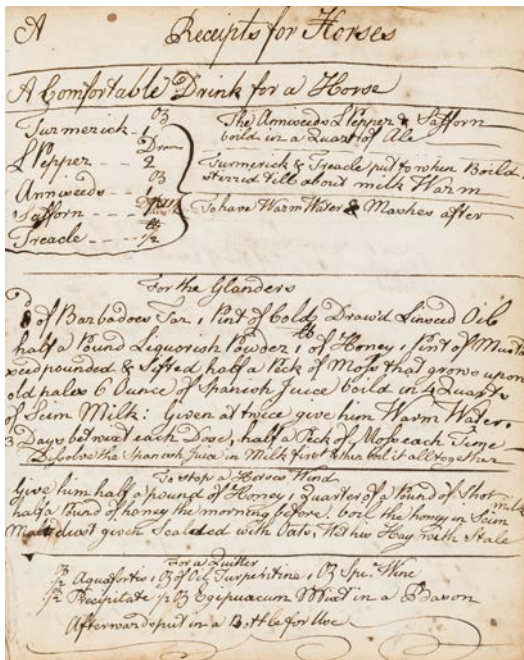 A
Receipts for Horses
A Comfortable Drink for a Horse
oz
Turmerick - 1
Dram
L Pepper -- 2
oz
Anniseeds - 1
Saffron --
lb
Treacle ---- 1/2
The Anniseeds L Pepper & Saffron
boild in a Quart of Ale
Turmerick & Treacle put to when Boild
sterrid till about milk Warm
To have Warm Water & Mashes after
For the Glanders
of Barbadoes Tar, 1 Pint of Cold Draw'd Linseed Oil
lb
half a Pound Liquorish Powder 1 of Honey 1 Pint of Must
seed pounded & Sifted half a Peck of Moss that grows upon
old pales 6 Ounce of Spanish Juice boild in 4 Quarts
of Scim Milk: Given at twice give him Warm Water.
3 Days betwixt each Dose, half a Peck of Moss each Time
Dissolve the Spanish Juice in Milk first & then boil it all together
To stop a Horses Wind
Give him half a pound of Honey 1 Quarter of a Pound of Shot
milk
half a Pound of honey the morning before. boil the honey in Scim
Malt dust given Scalded with Oats, Wet his Hay with Stale
For a Quitter
oz
1/2 Aquafortis 1 oz of Oil Turpentine 1 oz Spt. Wine
oz
1/2 Precipitate 1/2 oz Egipuacum Mixt in a Bason
Afterwards put in a Bottle for Use